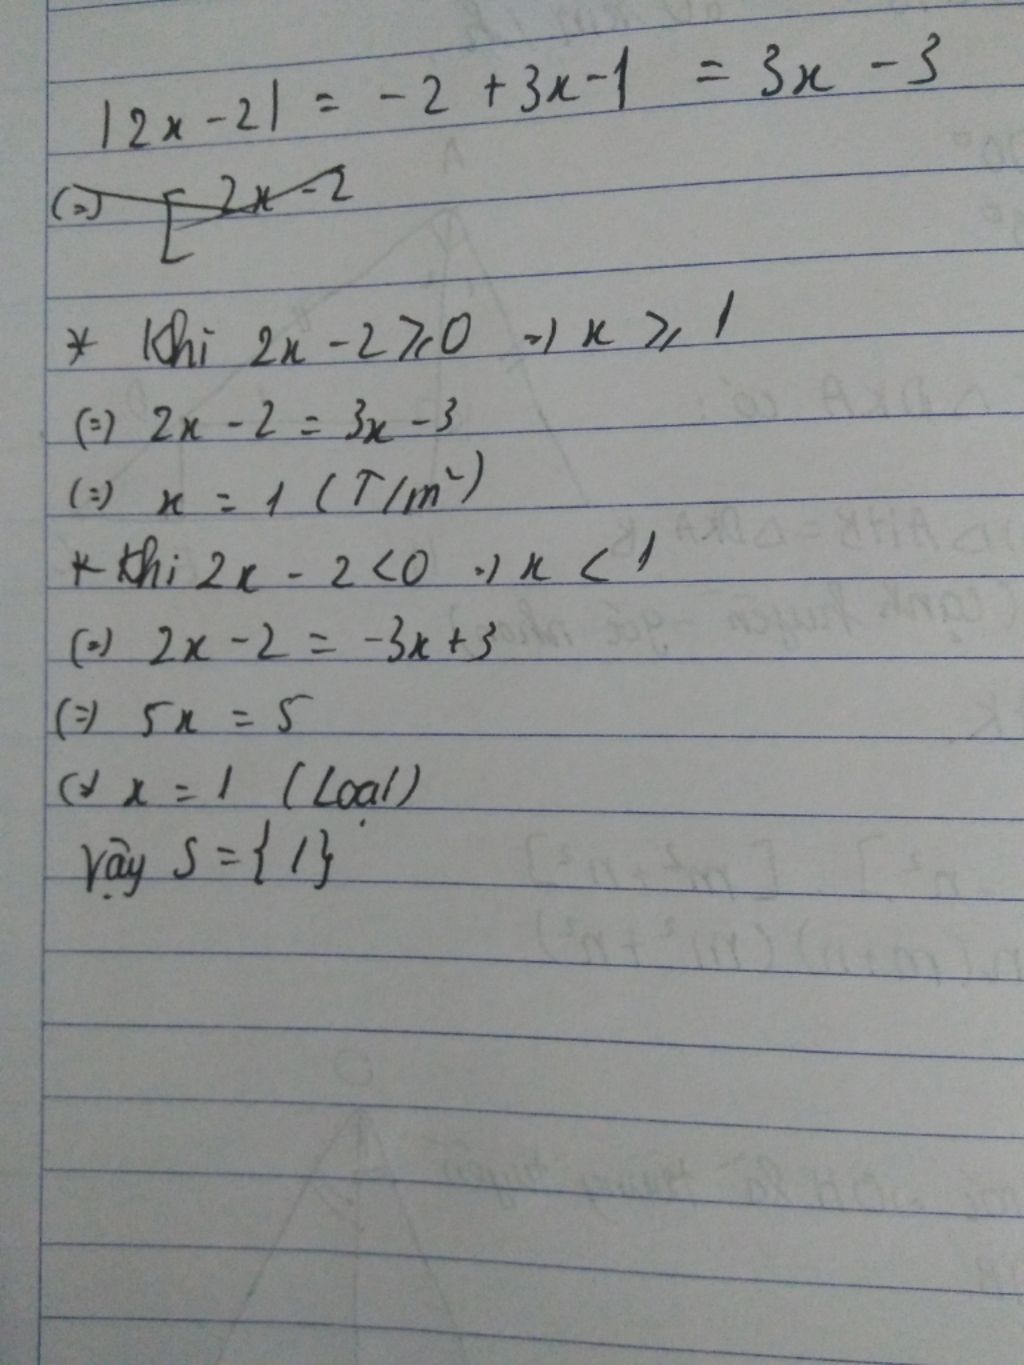 |2x - 2| = - 2 + 3x - 1 = 3x - 3
(=) [ 2x - 2
* Khi 2x - 2 ⩾ 0 => x ⩾ 1
(=) 2x - 2 = 3x - 3
(=) x = 1 (T/m²)
* Khi 2x - 2 < 0 => x < 1
(=) 2x - 2 = -3x + 3
(=) 5x = 5
(=) x = 1 (Loại)
Vậy S = {1}